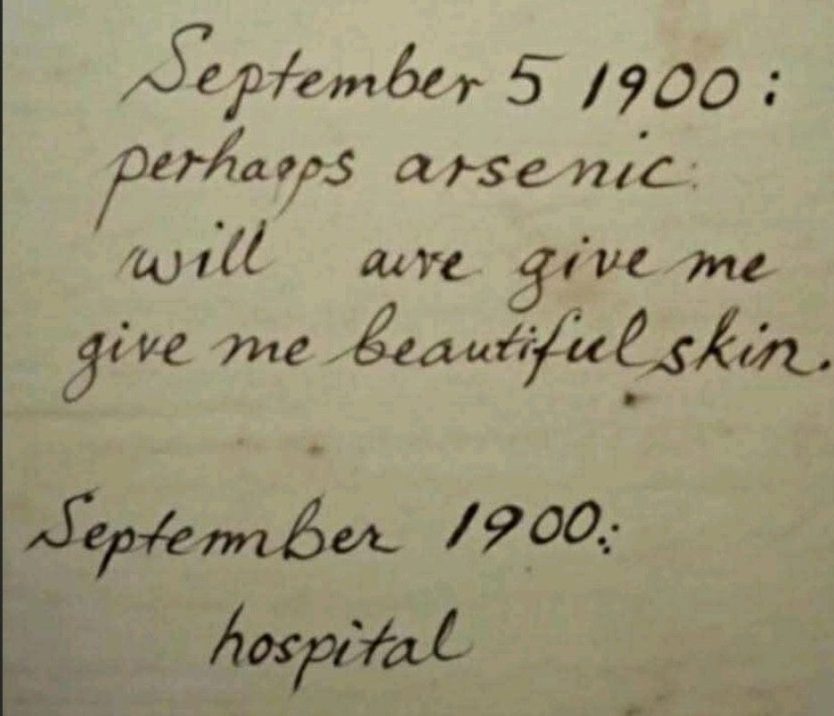 September 5 1900:
perhaps arsenic
will give me
give me beautiful skin.
Septemnber 1900:
hospital